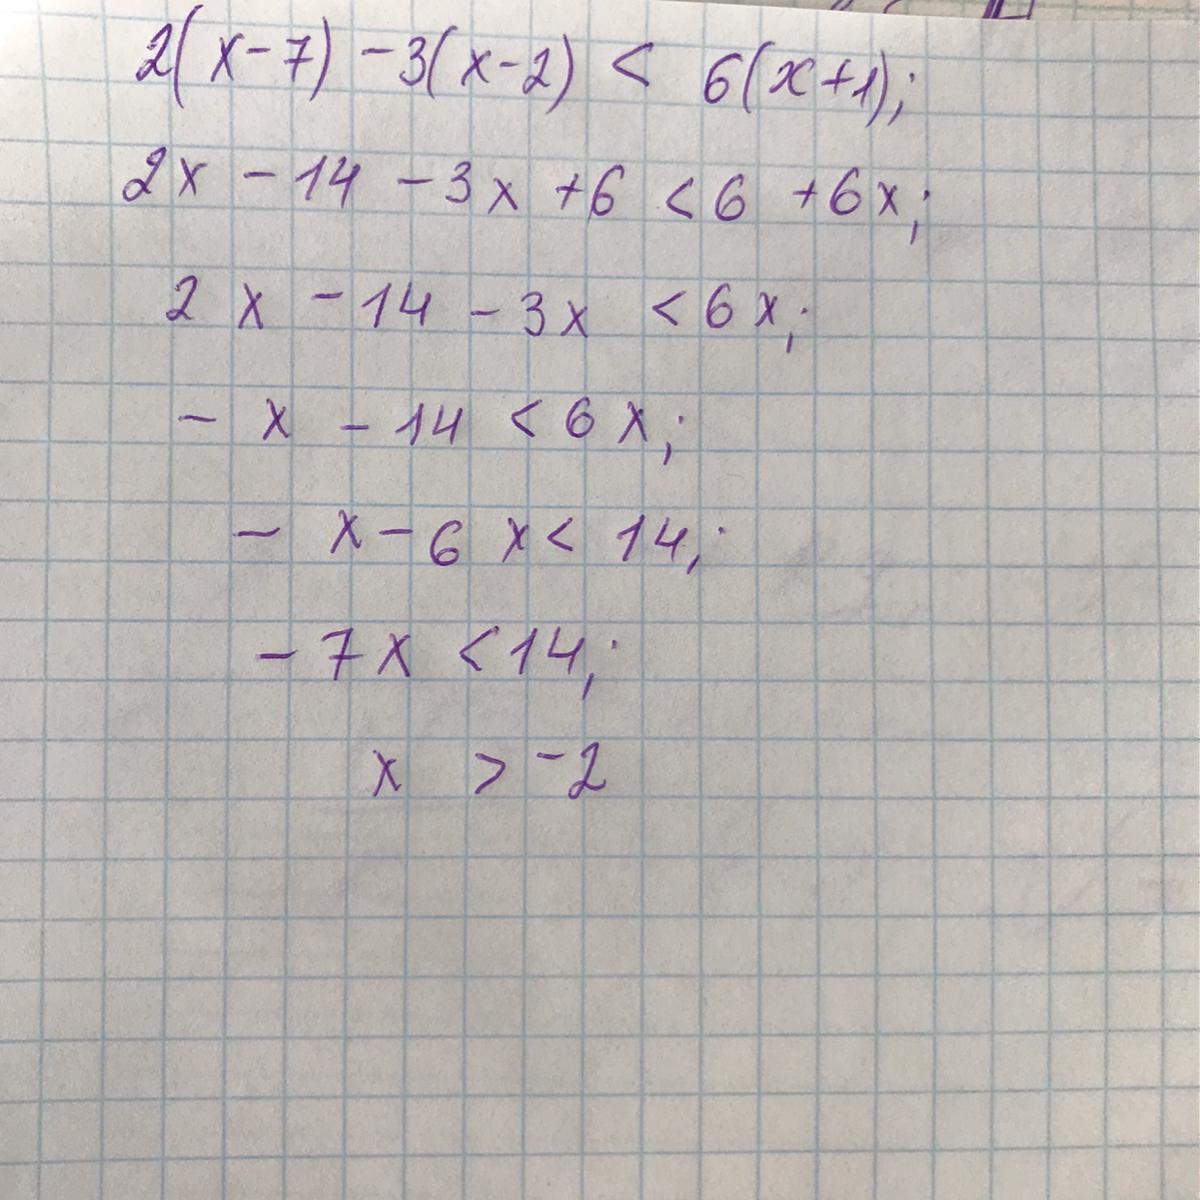 2(x-7) -3(x-2) < 6(x+1);
2x -14 -3x +6 <6 +6x;
2x -14 -3x <6x;
-x -14 <6x;
-x-6x< 14;
-7x <14;
x >-2